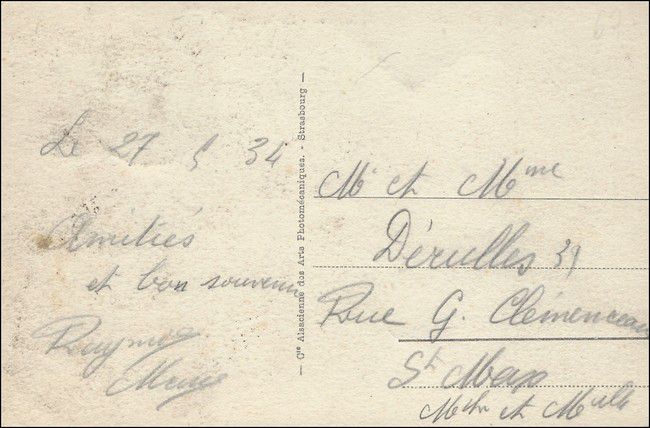 Le 27 5 34
Amitiés
et bon souvenir
— Cie Alsacienne des Arts Photomécaniques. - Strasbourg —
Mr et Mme
Dérulles 39
Rue G. Clémenceau
St Max
Mthe et Melle